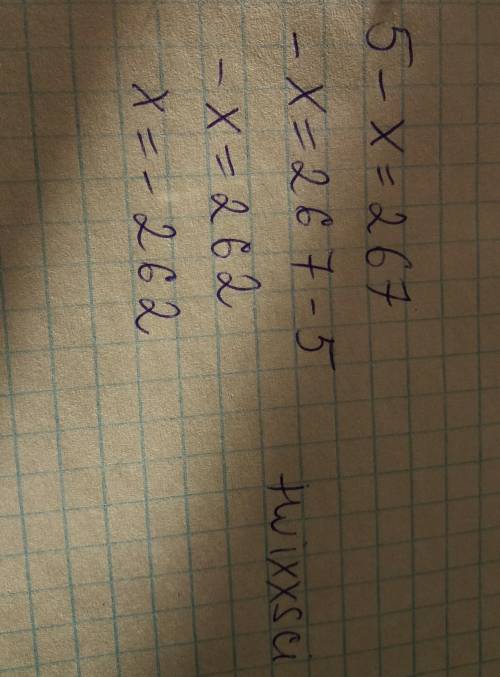 5 - x = 267
- x = 267 - 5
- x = 262
x = - 262
twixxsci